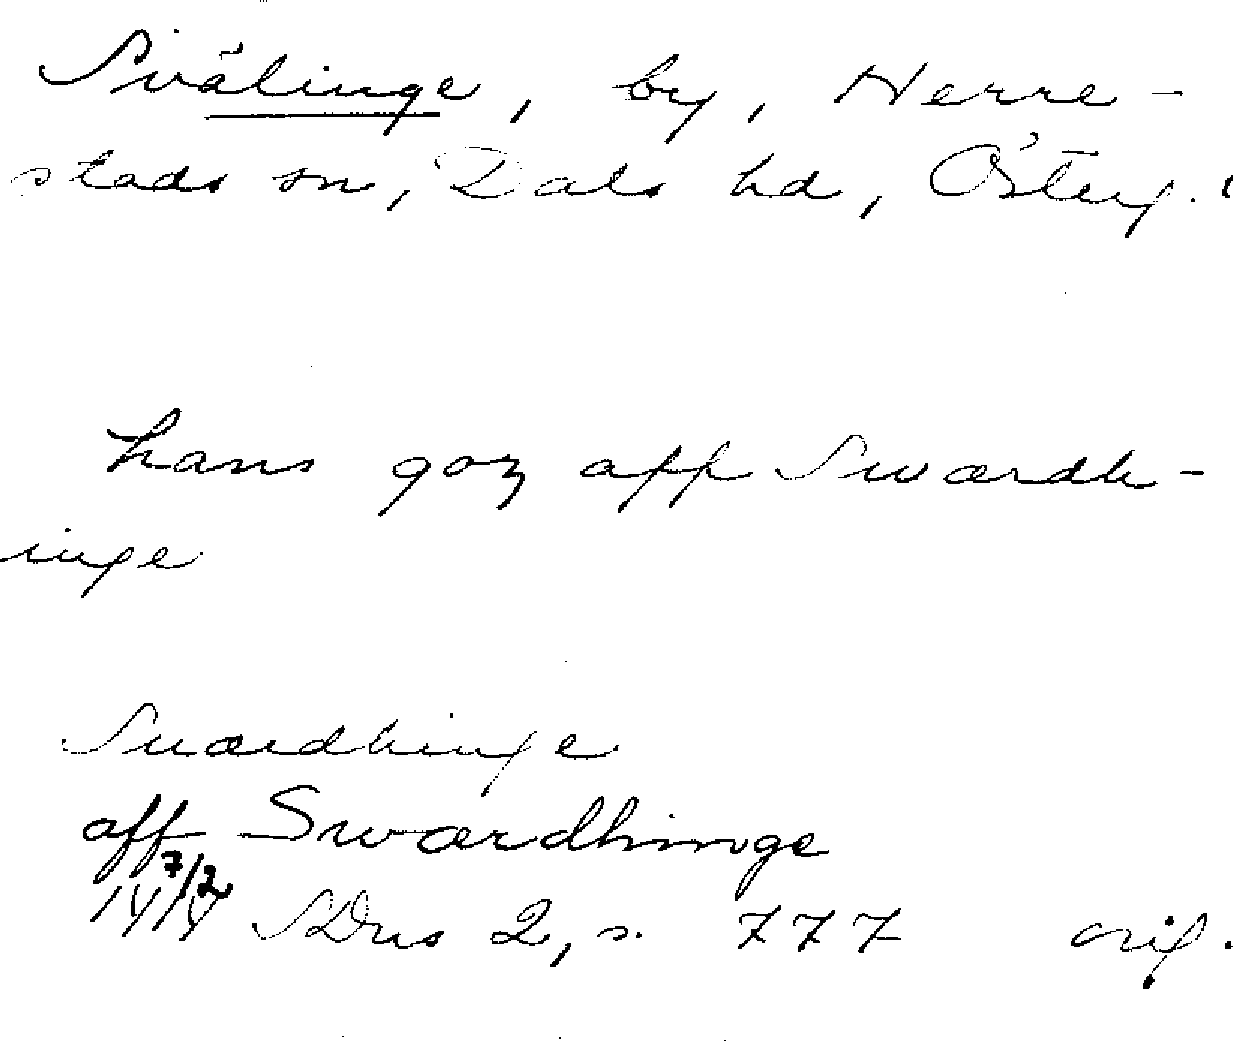 Svälinge, by, Herre-
stads sn, Dals hd, Österg.
hans goz aff Swærdh-
inge
Suærdhinge
aff Swærdhinge
1414 7/2 SDns 2, s. 777 orig.